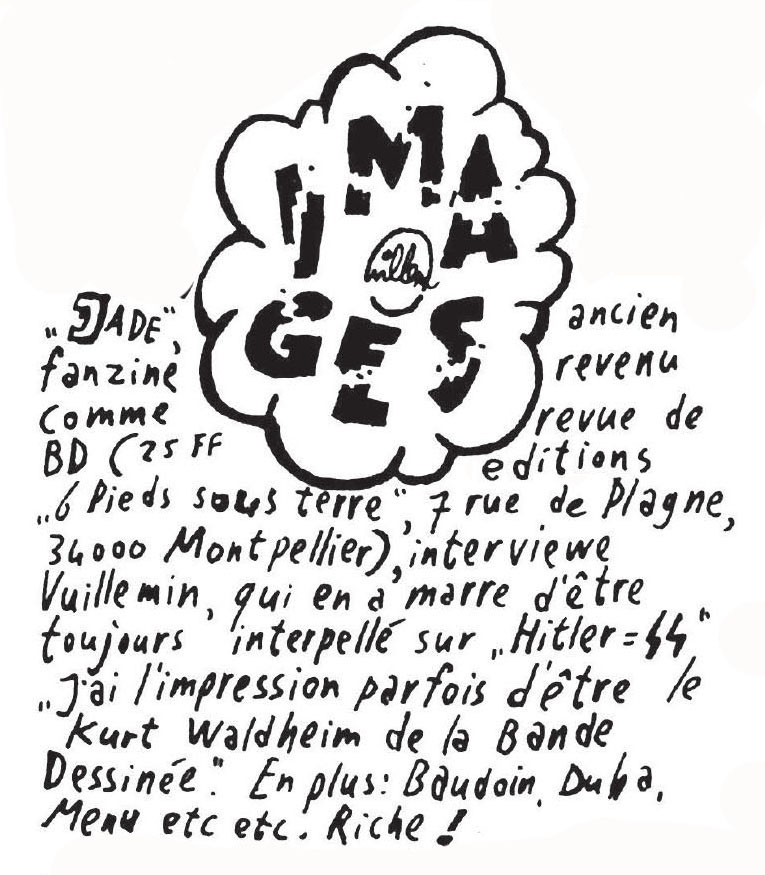 IMAGES
Willem
"JADE", ancien
fanzine revenu
comme revue de
BD (25 FF editions
"6 Pieds sous terre", 7 rue de Plagne,
34000 Montpellier), interviewe
Vuillemin, qui en a marre d'être
toujours interpellé sur "Hitler=SS"
"J'ai l'impression parfois d'être le
Kurt Waldheim de la Bande
Dessinée". En plus: Baudoin, Duba,
Menu etc etc. Riche !